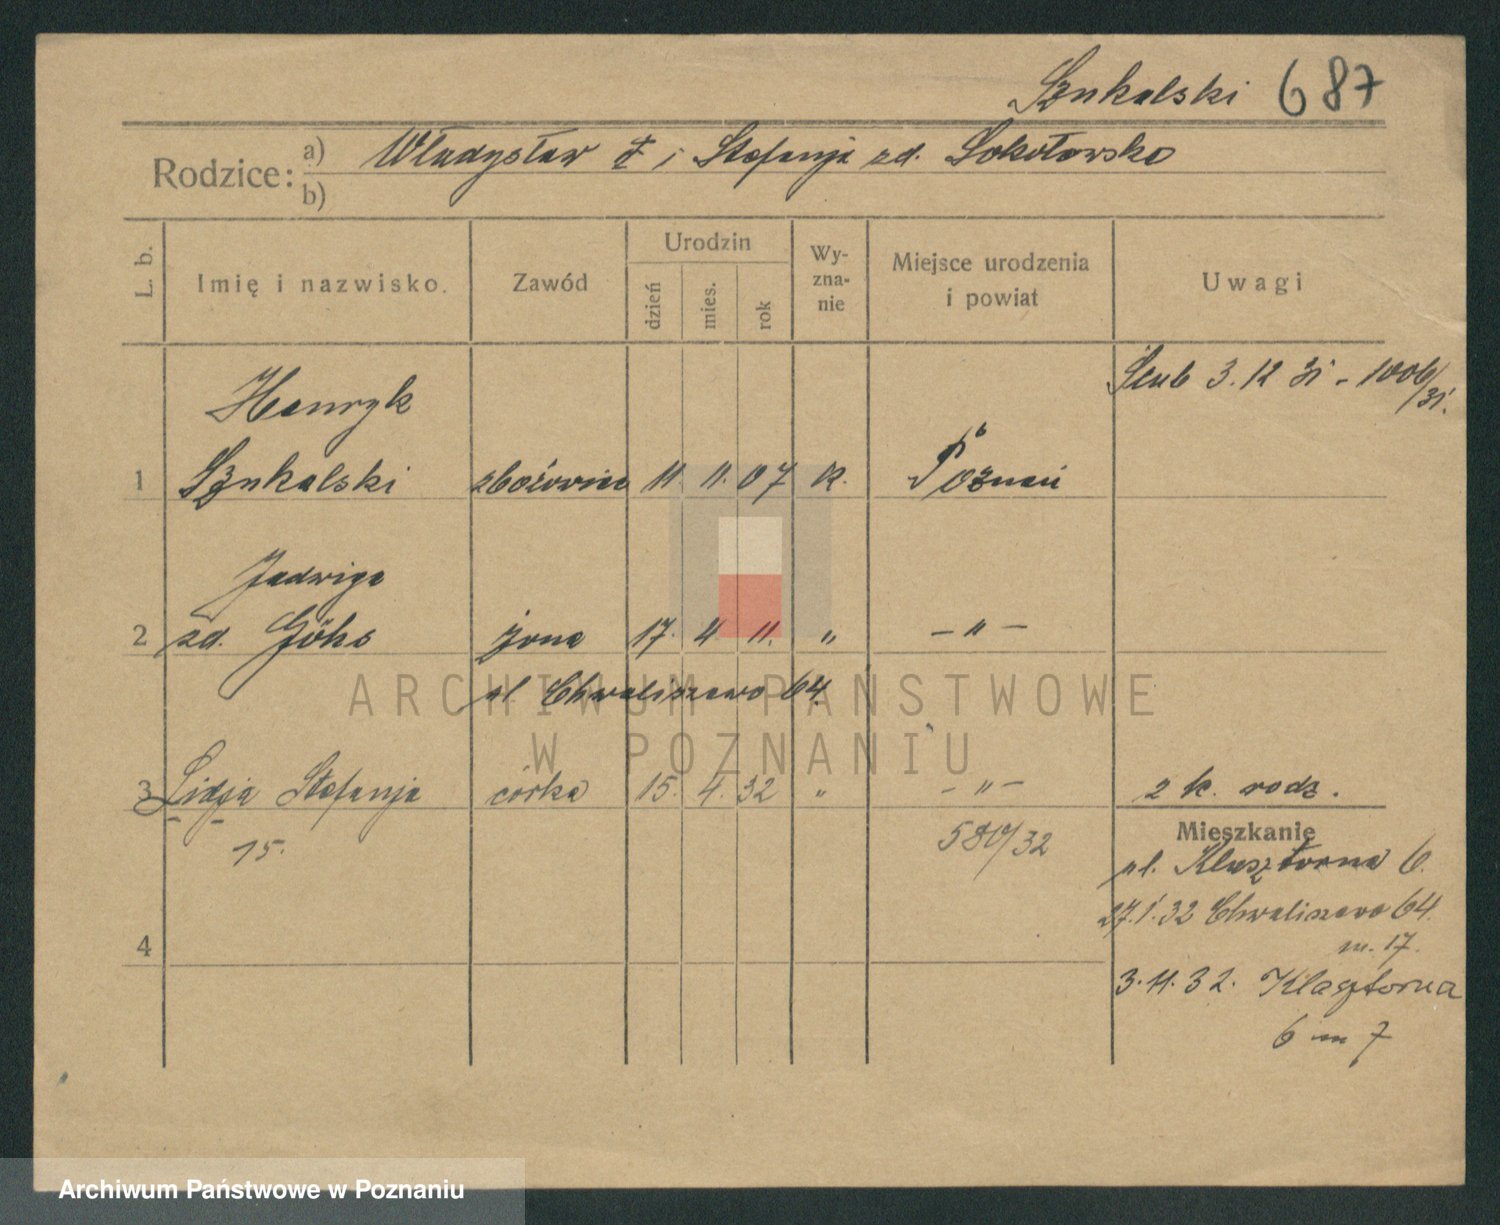 Szukalski 687
Rodzice: a) Władysław † i Stefanja zd. Sokołowska
b)
L. b. Imię i nazwisko. Zawód Urodzin dzień mies. rok Wyznanie Miejsce urodzenia i powiat Uwagi
Ślub 3.12 31 - 1006/31.
Henryk
1 Szukalski zbożowiec 11. 11. 07 k. Poznań
Jadwiga
2 zd. Göhs żona 17. 4 11. „ - „ -
ul. Chwaliszewo 64.
3 Lidja Stefanja córka 15. 4. 32 „ - „ - z k. rodz.
15. 580/32
Mieszkanie
ul. Klasztorna 6.
27.1.32 Chwaliszewo 64.
m. 17.
4
3.11.32. Klasztorna
6 m 7
ARCHIWUM PAŃSTWOWE
W POZNANIU
Archiwum Państwowe w Poznaniu